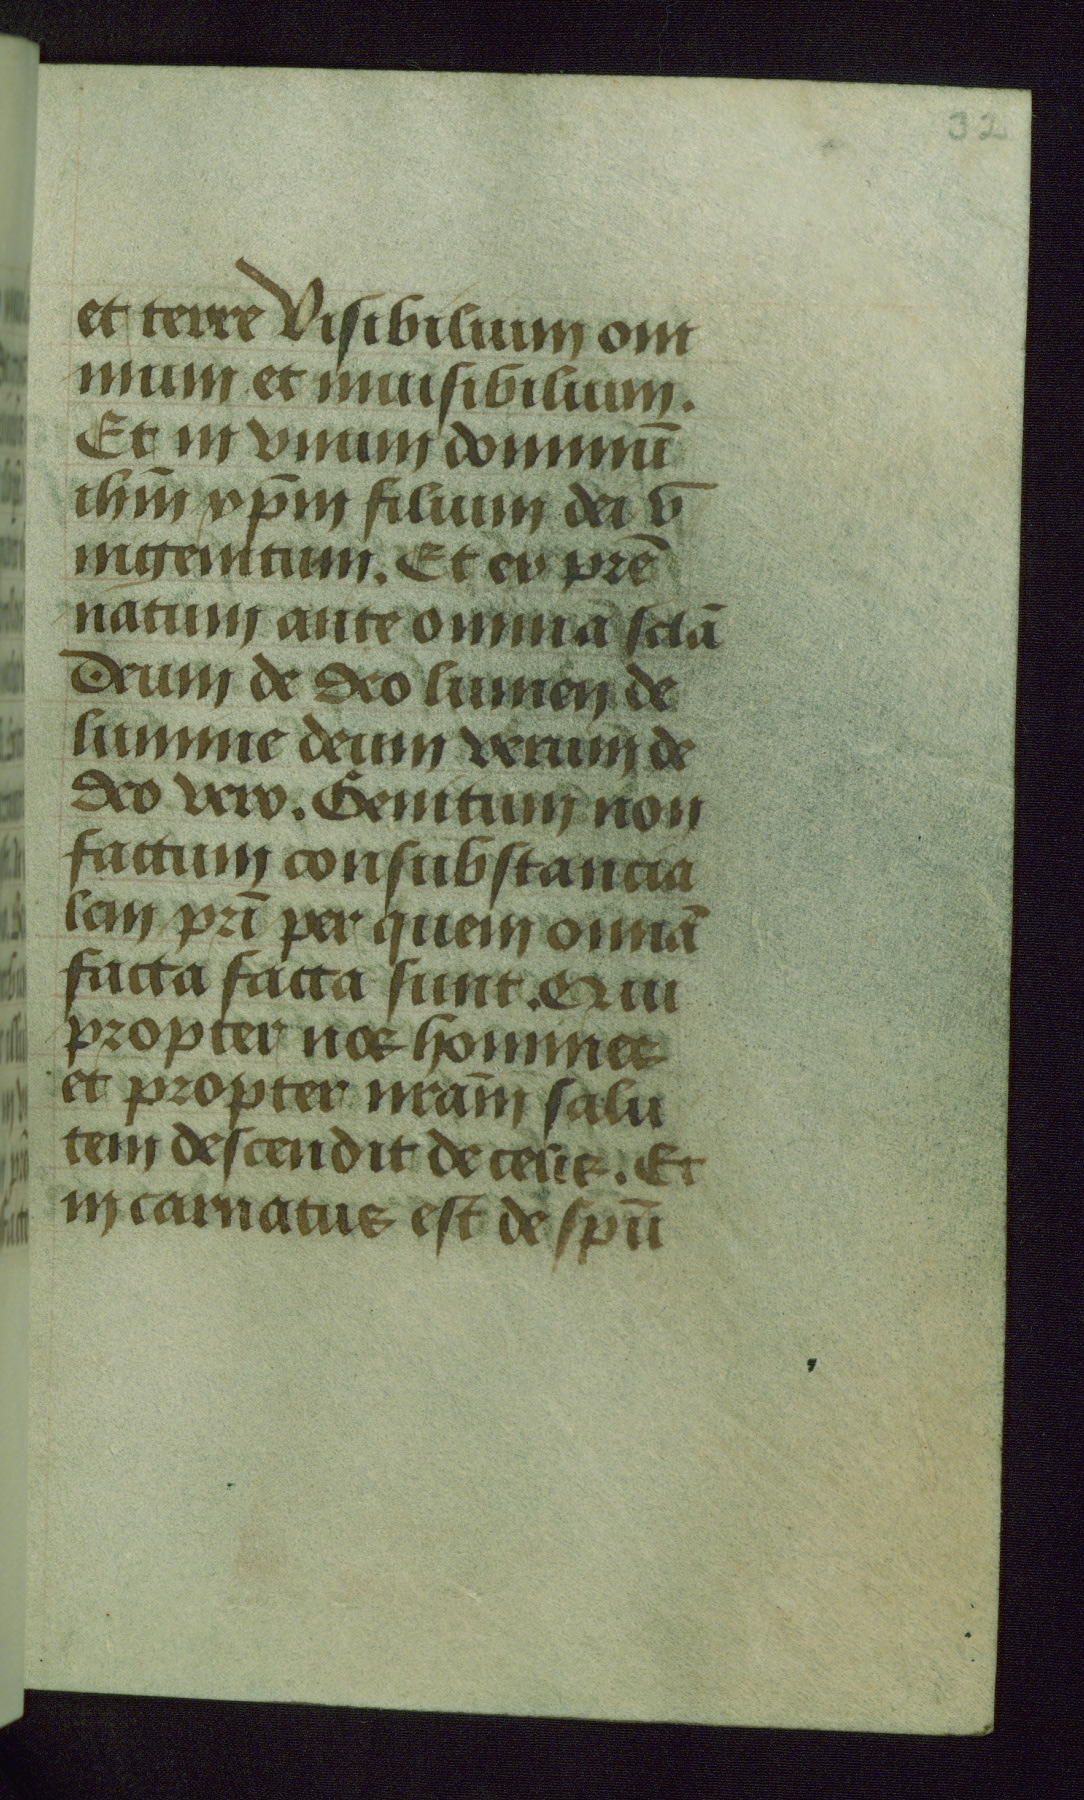 32
et terre Visibilium om
nium et inuisibilium.
Et in vnum dominū
ihm̄ xp̄m filium dei v̄
nigenitum. Et ex prē
natum ante omnia sclā
Deum de deo lumen de
lumine deum verum de
deo vero. Genitum non
factum consubstancia
lem prī per quem omnā
facta facta sunt. Qui
propter nos homines
et propter nrām salu
tem descendit de celis. Et
in carnatus est de spū